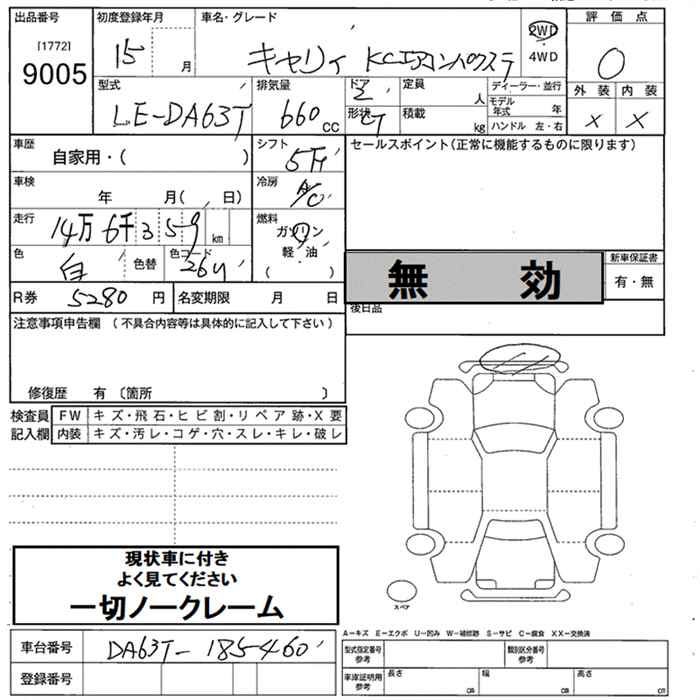 出品番号 初度登録年月 車名・グレード 評価点
[1772]
9005
15 月 キャリィ KCエアコンパワステ 2WD
4WD 0
外装 内装
x x
型式 排気量 ドア 定員 ディーラー・並行
LE-DA63T 660cc 2 人 モデル年式 年
形状 CT 積載 kg ハンドル 左・右
車歴 シフト セールスポイント(正常に機能するものに限ります)
自家用・( ) 5M
車検 冷房
年 月( 日) A/C
走行 燃料
14万6千359km ガソリン
軽・油
( )
色 白 色替 色コード 26U
無効 新車保証書
有・無
R券 5280円 名変期限 月 日
後日品
注意事項申告欄(不具合内容等は具体的に記入して下さい)
修復歴 有〔箇所 〕
検査員 FW キズ・飛石・ヒビ割・リペア跡・X要
記入欄 内装 キズ・汚レ・コゲ・穴・スレ・キレ・破レ
現状車に付き
よく見てください
一切ノークレーム
スペア
A-キズ E-エクボ U-凹み W-補修跡 S-サビ C-腐食 XX-交換済
車台番号 DA63T-185460
型式指定番号 参考 類別区分番号 参考
登録番号
車庫証明用 参考 長さ cm 幅 cm 高さ cm